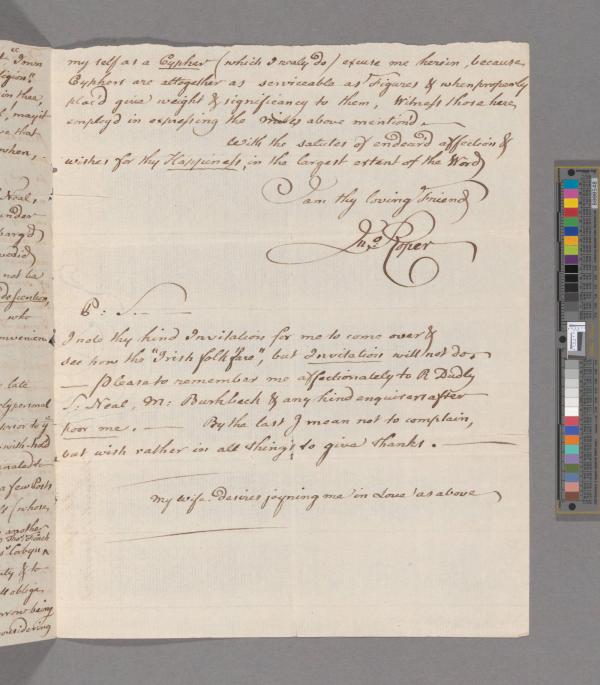 my self as a Cypher (which I realy do) excuse me herein, because
Cyphers are altogether as serviceable as Figures & when properly
plac'd give weight & significancy to them, Witness those here,
employ'd in expressing the Miles above mention'd. —
With the salutes of endear'd affection &
wishes for thy Happiness, in the largest extent of the Word,
I am thy loving Friend
Jno. Roper
P: S. —
I note thy kind Invitation for me to come over &
see how the "Irish folk fare", but Invitation will not do,
— Please to remember me affectionately to R Dudly
S: Neal, M: Burkbeck & any kind enquirers after
poor me. — By the last I mean not to complain,
but wish rather in all things to give thanks. —
My wife desires joyning me in Love as above
Town
in thee,
may it
that
when,
Neal,
under
not be
who
late
personal
with-hold
a few Posts
(whose,
another
& to
oblige
being
considering